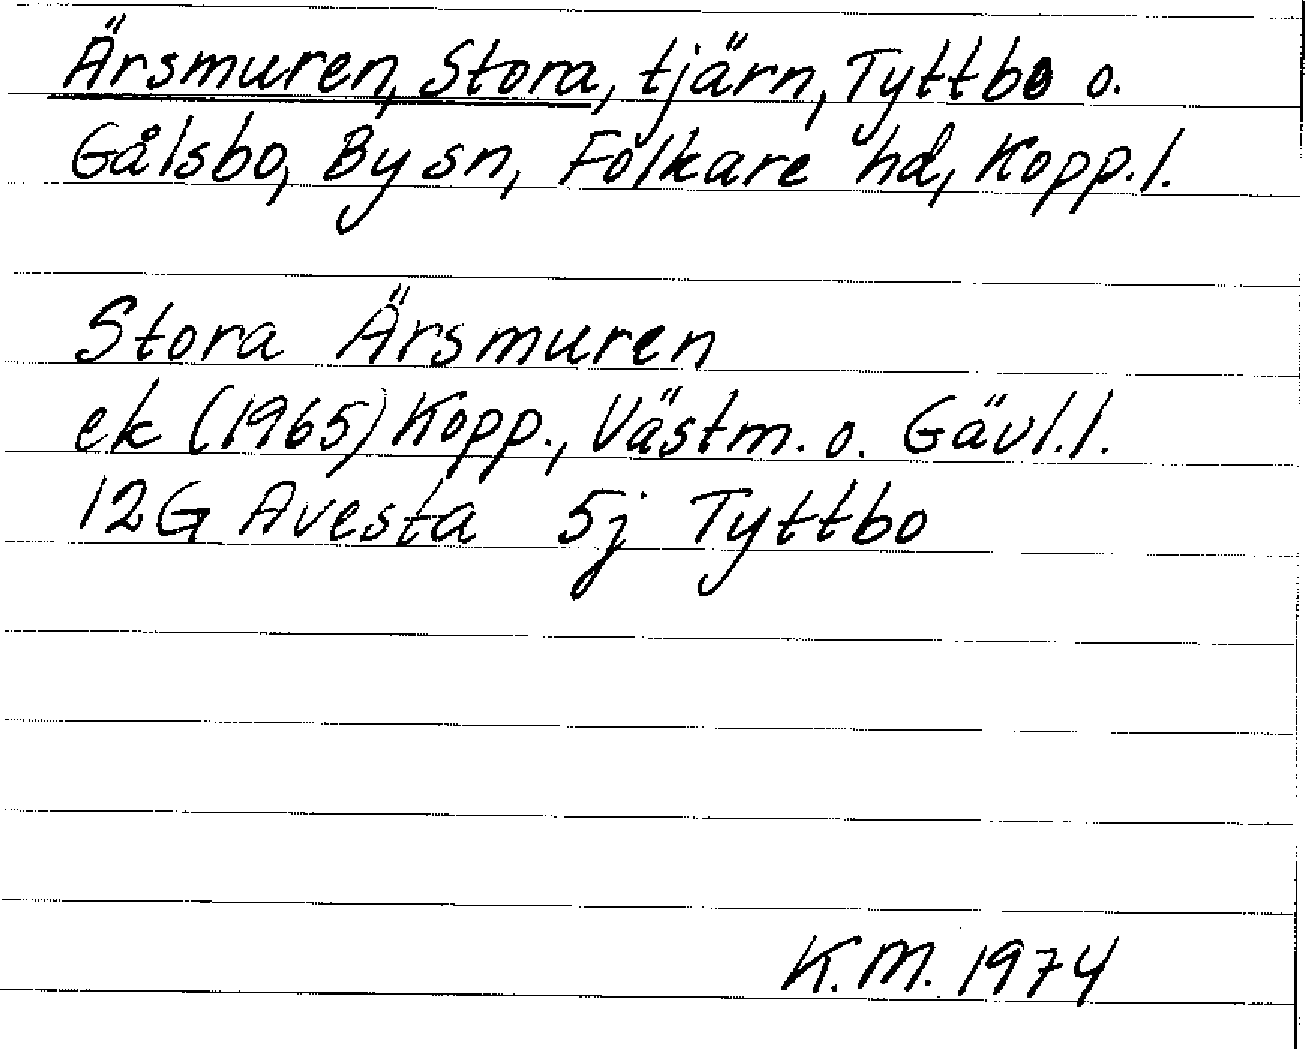 Ärsmuren, Stora, tjärn, Tyttbo o.
Gålsbo, By sn, Folkare hd, Kopp. l.
Stora Ärsmuren
ek (1965) Kopp., Västm. o. Gävl. l.
12G Avesta 5j Tyttbo
K.M. 1974